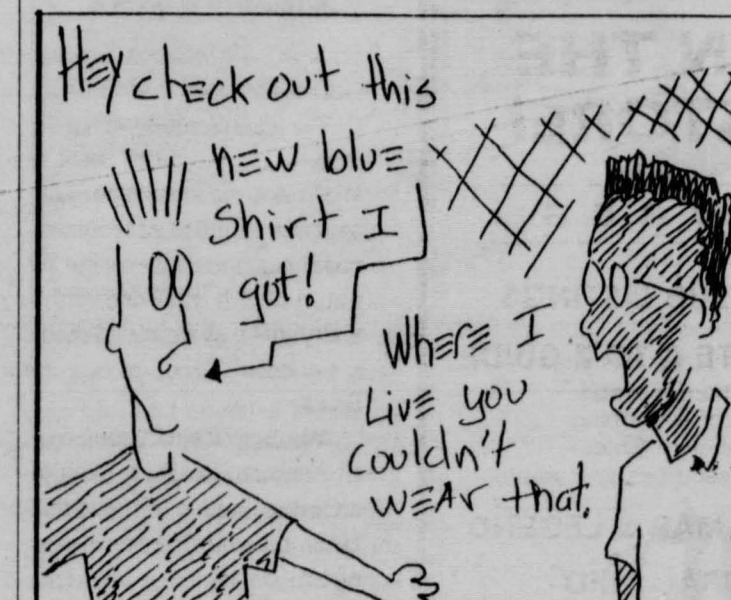 Hey check out this
new blue
Shirt I
got!
Where I
Live you
couldn't
wear that.